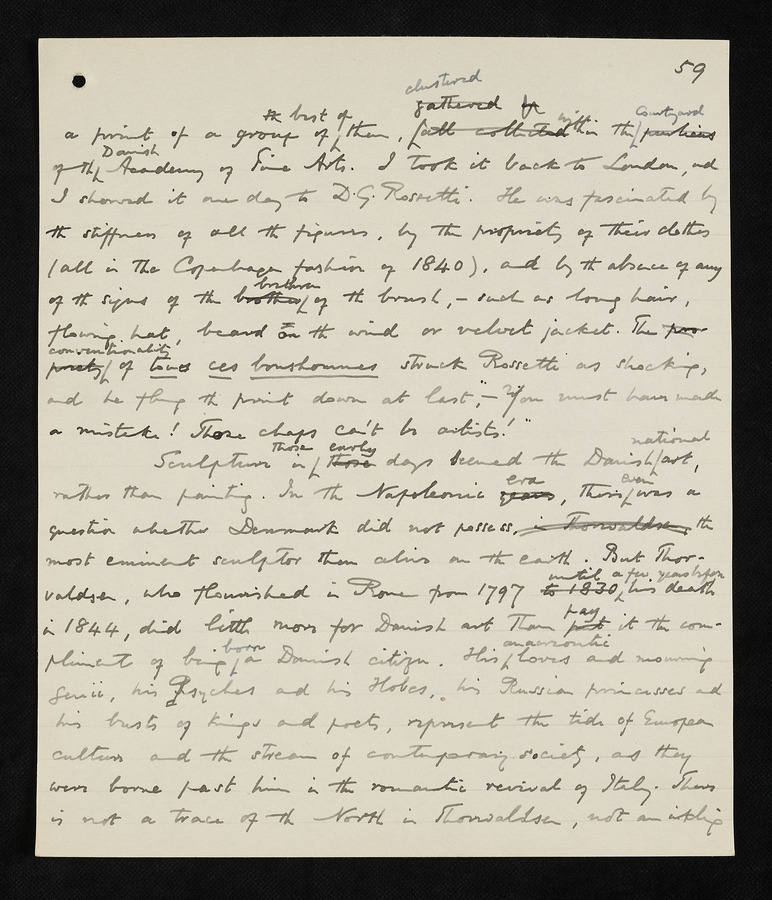 59
clustered
the best of gathered by within Courtyard
a print of a group of them, (all collected in the
of the Danish Academy of Fine Arts. I took it back to London, and
I showed it one day to D.G. Rossetti. He was fascinated by
the stiffness of all the figures, by the propriety of their clothes
(all in the Copenhagen fashion of 1840), and by the absence of any
brethren
of the signs of the brothers of the brush, – such as long hair,
flowing hat, beard on the wind or velvet jacket. The poor
conventionality
of tous ces bonshommes struck Rossetti as shocking,
and he flung the print down at last, – "You must have made
a mistake! Those chaps can't be artists!"
those early national
Sculpture in those days seemed the Danish art,
era even
rather than painting. In the Napoleonic years, there was a
question whether Denmark did not possess, in Thorwaldsen, the
most eminent sculptor then alive on the earth. But Thor-
until a few years before
valdsen, who flourished in Rome from 1797 to 1830, his death
pay
in 1844, did little more for Danish art than put it the com-
born anacreontic
pliment of being a Danish citizen. His loves and mourning
genii, his Psyches and his Hebes, his Russian princesses and
his busts of kings and poets, represent the tide of European
culture and the stream of contemporary society, as they
were borne past him in the romantic revival of Italy. There
is not a trace of the North in Thorwaldsen, not an inkling